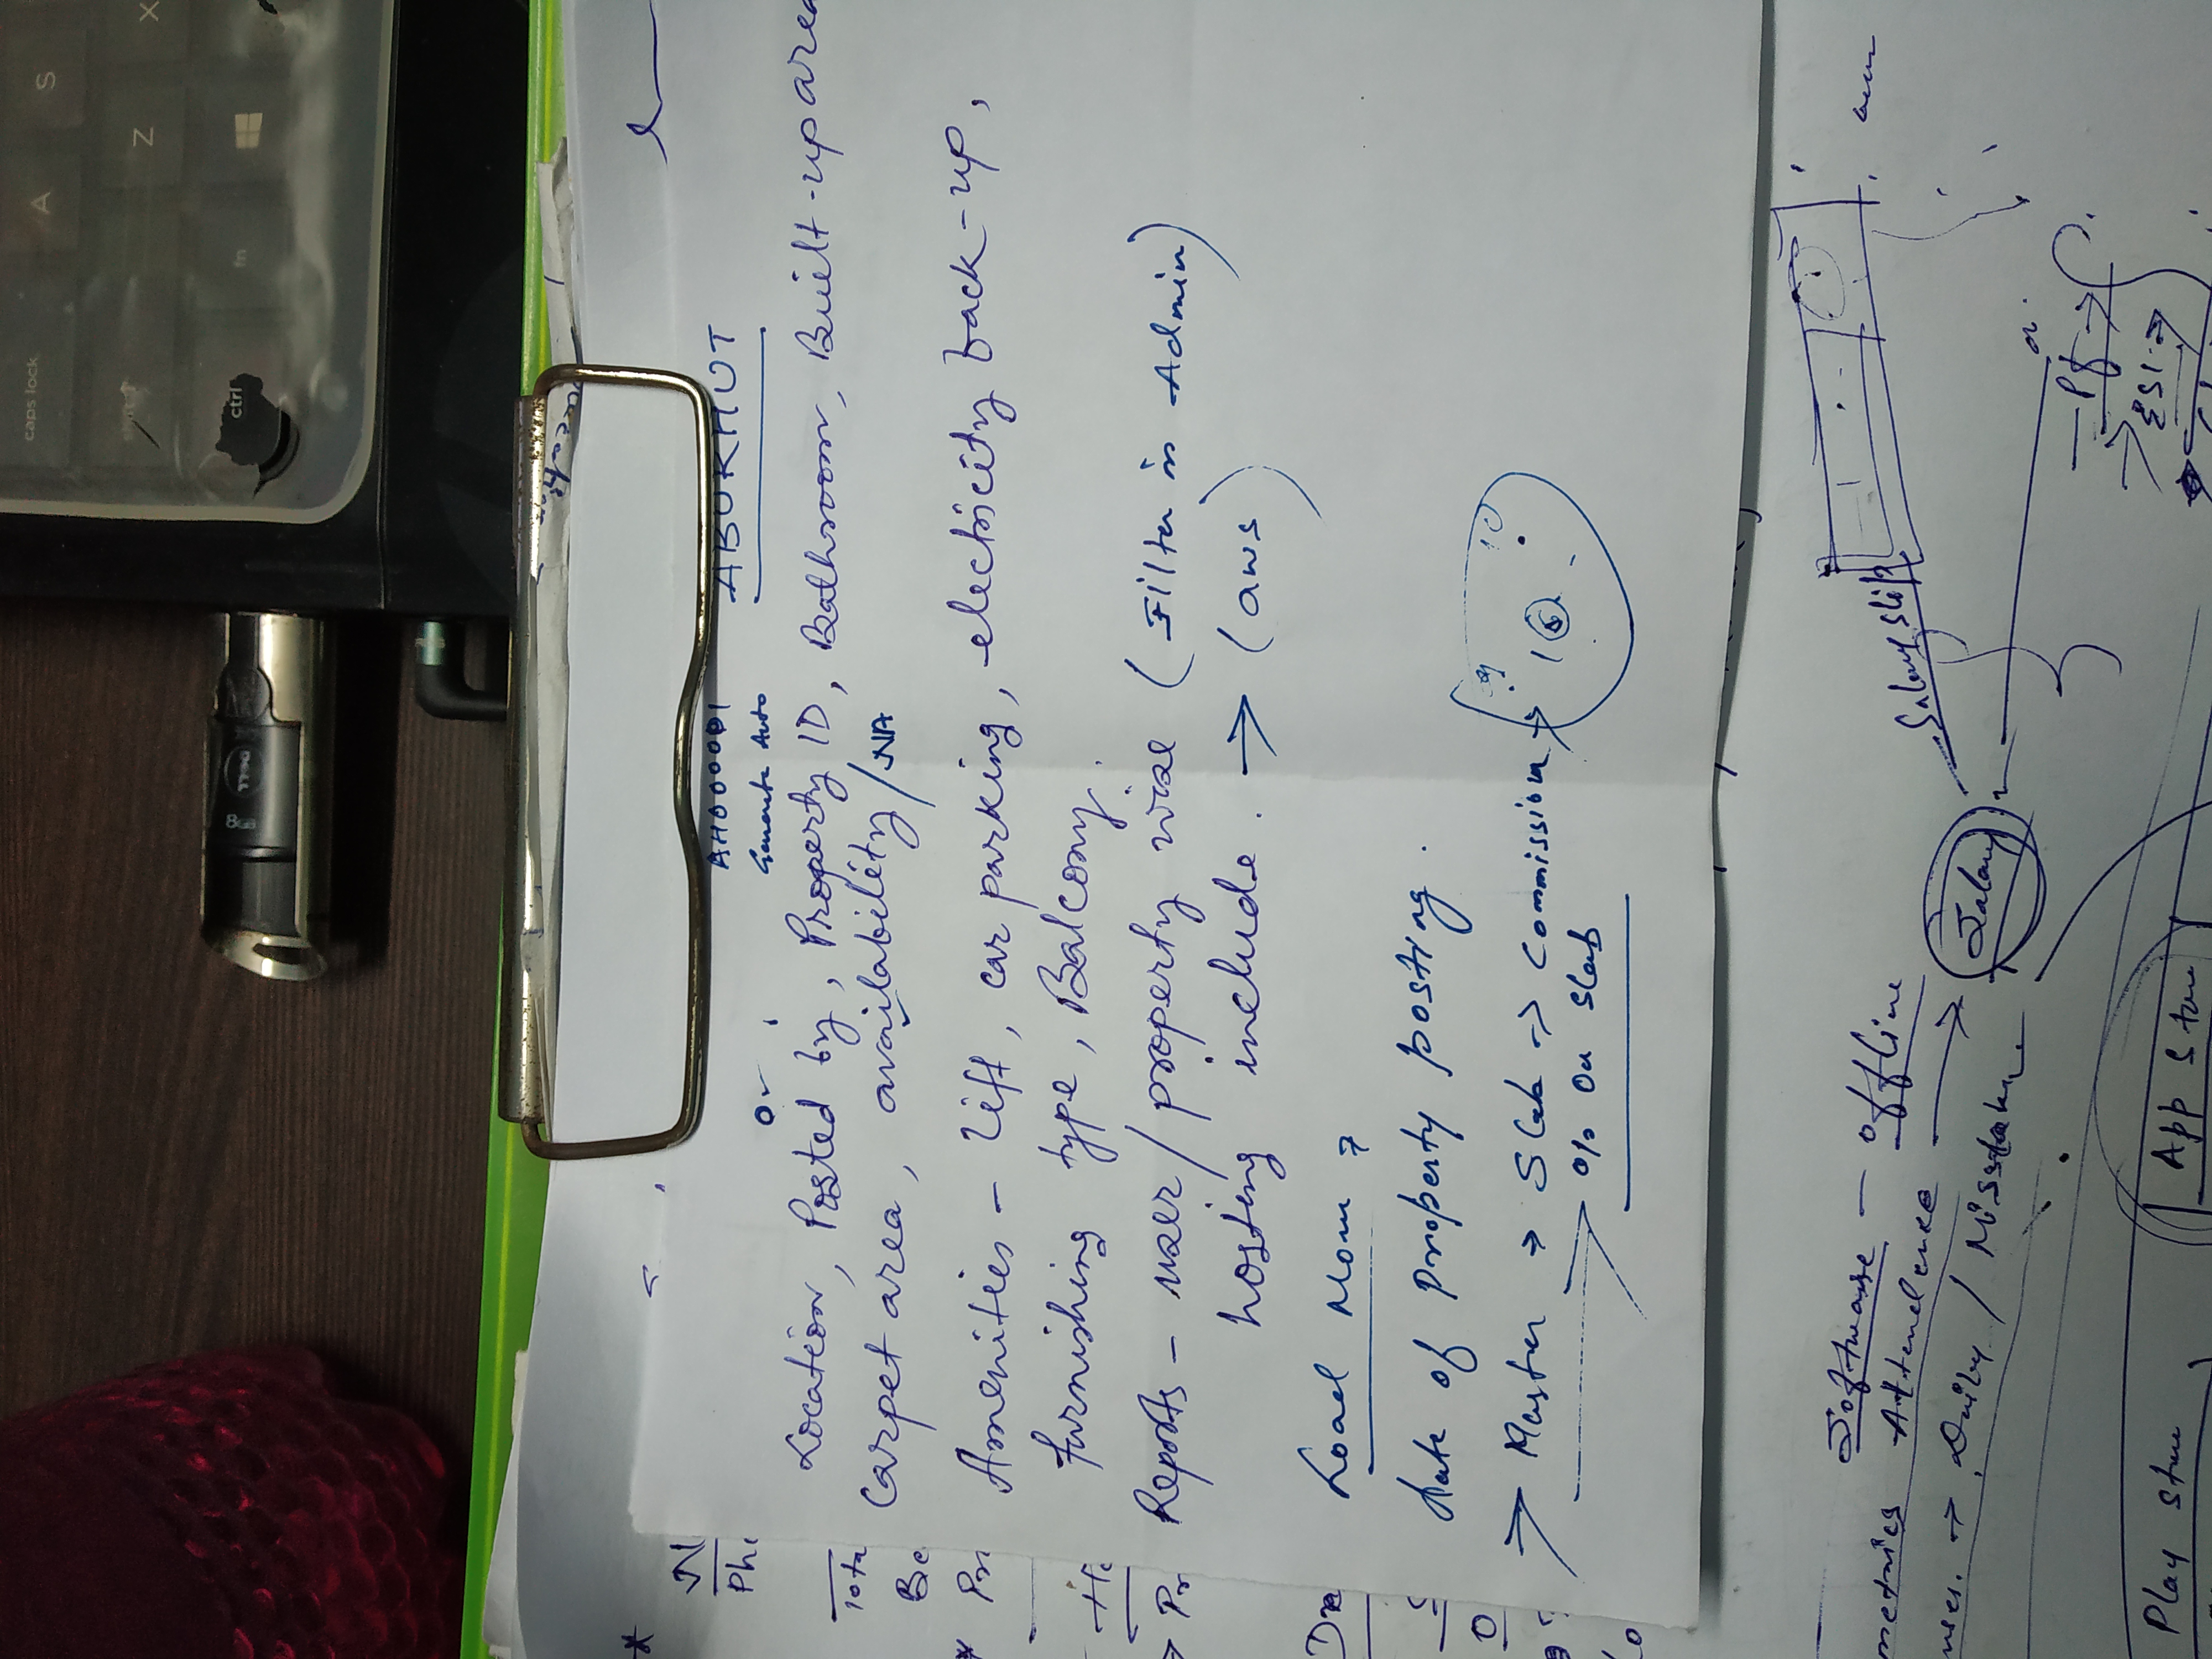 caps lock A S
shift Z X
ctrl fn
DELL
AH000001 ABUKHUT
Generate Auto
Location, Posted by, Property ID, Bathroom, Built-up area
Carpet area, availability / NA
Amenities - Lift, car parking, electricity back-up,
furnishing type, Balcony.
Reports - user / property wise (Filter in Admin)
hosting include. → (aws)
Load More
Date of Property posting.
→ Master → Slab → Commission →
% On Slab
N
Tota
Be
Pr
Pr
10
Software - offline
metrics Attendence → Salary
Salary slip
Pf →
ESI →
Play store App store